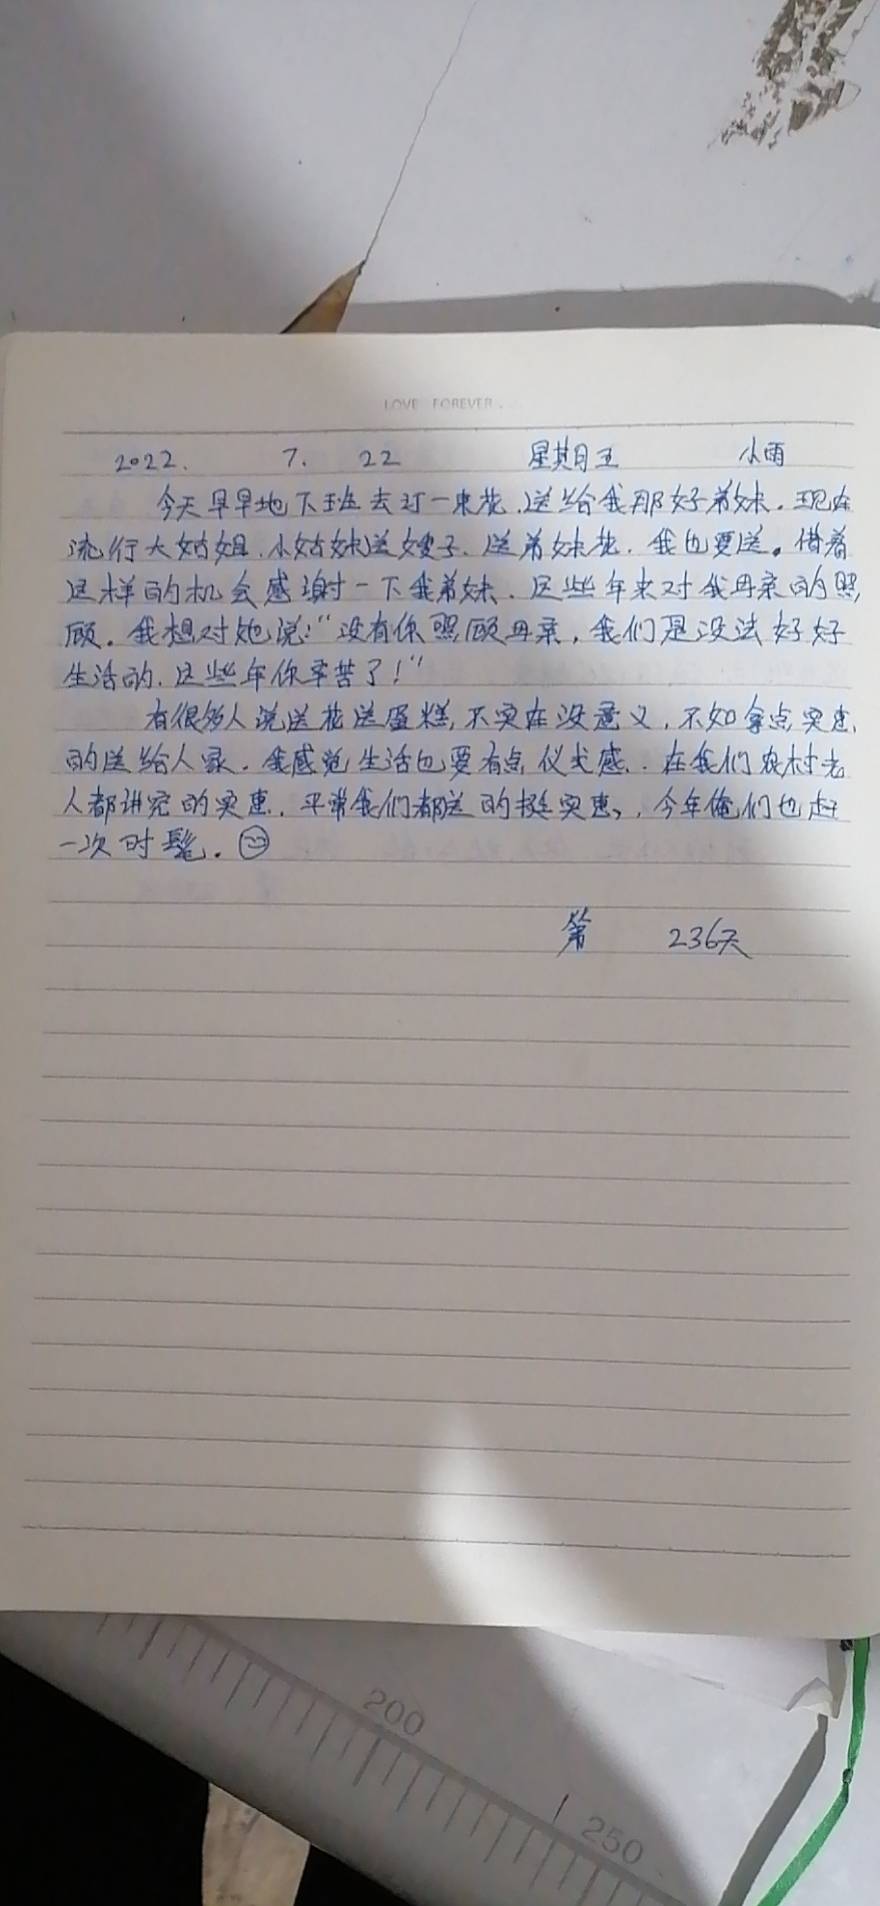 LOVE FOREVER
2022. 7. 22 星期日五 小雨
今天早早地下班去订一束花,送给我那好弟妹。现在
流行大姑姐、小姑妹送嫂子、送弟妹花,我也要送。借着
这样的机会感谢一下我弟妹,这些年来对我母亲的照
顾。我想对她说:“没有你照顾母亲,我们是没法好好
生活的,这些年你辛苦了!”
有很多人说送花送蛋糕,不实在没意义,不如拿点实惠
的送给人家。我感觉生活也要有点仪式感。在我们农村老
人都讲究的实惠,平常我们都送的挺实惠,今年俺们也赶
一次时髦。
第 236天
200
250